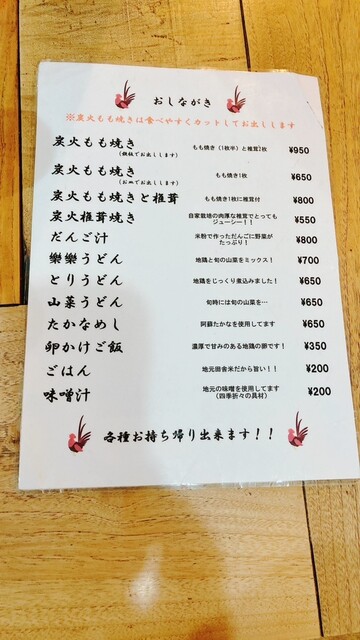 おしながき
※炭火もも焼きは食べやすくカットしてお出しします
炭火もも焼き もも焼き（1枚半）と椎茸2枚 ¥950
（鉄板でお出しします）
炭火もも焼き もも焼き1枚 ¥650
（お皿でお出しします）
炭火もも焼きと椎茸 もも焼き1枚に椎茸付 ¥800
炭火椎茸焼き 自家栽培の肉厚な椎茸でとってもジューシー！！ ¥550
だんご汁 米粉で作っただんごに野菜がたっぷり！ ¥800
樂樂うどん 地鶏と旬の山菜をミックス！ ¥700
とりうどん 地鶏をじっくり煮込みました！ ¥650
山菜うどん 旬時には旬の山菜を… ¥650
たかなめし 阿蘇たかなを使用してます ¥650
卵かけご飯 濃厚で甘みのある地鶏の卵です！ ¥350
ごはん 地元田舎米だから旨い！！ ¥200
味噌汁 地元の味噌を使用してます（四季折々の具材） ¥200
各種お持ち帰り出来ます！！